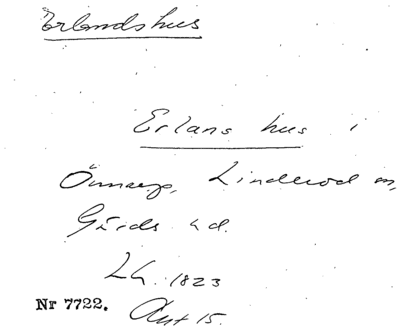 Erlandshus
Erlans hus i
Önnarp, Linderöd sn,
Gärds hd.
LA. 1823
Nr 7722. Akt 15.